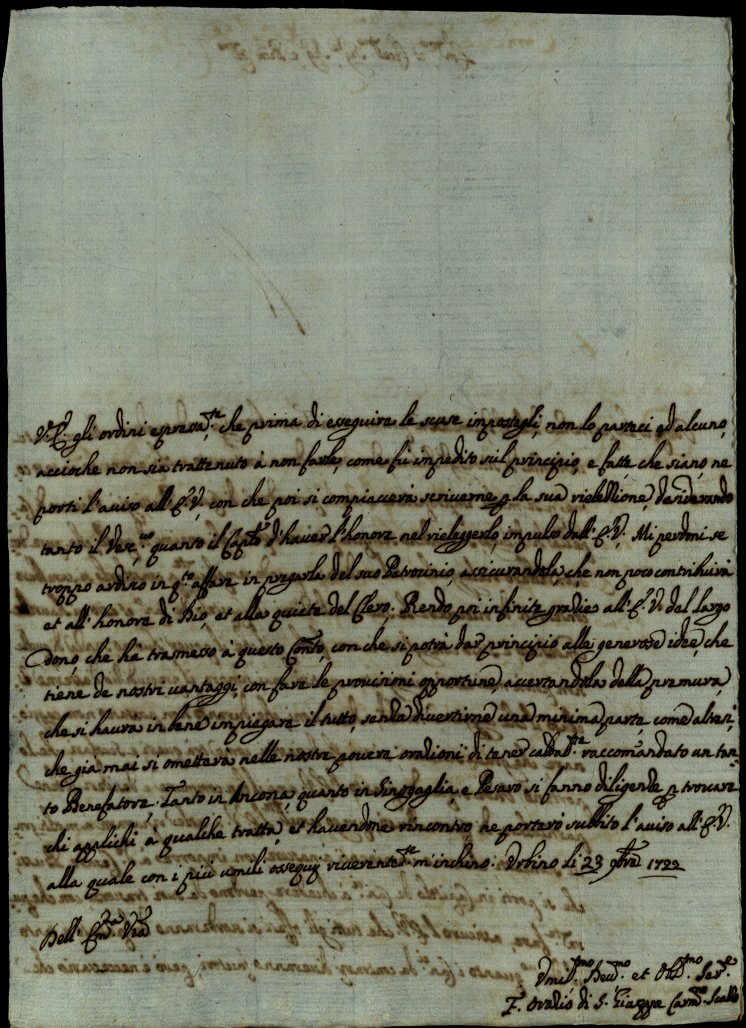 V. E. gli ordini espressam.te, che prima di esseguire le scuse impostegli, non lo parteci ad alcuno,
accioche non sia trattenuto à non farle, come fù impedito sul principio, e fatte che siano, ne
porti l'auiso all'E. V. con che poi si compiacerà scriuerne p la sua rielettione, desiderando
tanto il Vesc.uo quanto il Capto. d'hauer l'honore nel rieleggerlo, impulso dall'E. V. Mi perdoni se
troppo ardisco in q.to affare in pregarla del suo Patrocinio, assicurandola, che non poco contribuirà
et all'honore di Dio, et alla quiete del Clero. Rendo poi infinite gradie all'E. V. del largo
dono, che hà trasmesso à questo Conto, con che si potrà dar principio alle generose idee, che
tiene de nostri uantaggi, con fare le prouisioni opportune, accertandola della premura,
che si haurà in bene impiegare il tutto, senza diuertirne una minima parte, come altresi,
che gia mai si ometterà nelle nostre pouere orationi di tener raccomandato un tan
to Benefatore. Tanto in Ancona, quanto in Sinogaglia, e Pesaro si fanno diligenze p trouare
chi applichi à qualche tratta, et hauendone rincontro, ne portarò subbito l'auiso all'E. V.
alla quale con i più umili ossequij riuerentem.te m'inchino. Vrbino li 23 9bre 1722
Dell'
Vmil.mo Deu.mo et Obl.mo Ser.e
F. di S. Giuseppe Carm.o Scalzo